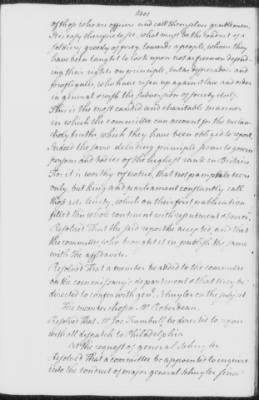 of those who are officers and call themselves gentlemen.
It is easy therefore to see, what must be the conduct of a
soldiery greedy of prey, towards a people, whom they
have been taught to look upon not as freemen defend
ing their rights on principle, but as desperadoes and
profligates, who have risen up against law and order
in general & wish the subversion of society itself.
This is the most candid and charitable manner
in which the committee can account for the melan
choly truths which they have been obliged to report.
Indeed the same deluding principle seems to govern
persons and bodies of the highest rank in Britain
For it is worthy of notice, that not pamphleteers
only but king and parliament constantly call
those acts lenity, which on their first publication
filled this whole continent with resentment & horror.
Resolved That the said report be accepted and that
the committee who brought it in publish the same
with the affidavits.
Resolved That a member be added to the committee
on the commissary's department & that they be
directed to confer with genl. Schuyler on the subject.
The member chosen Mr Roberdeau.
Resolved That Mr Jos. Trumbull be directed to repair
with all despatch to Philadelphia
At the request of general Schuyler
Resolved That a committee be appointed to enquire
into the conduct of major general Schuyler since